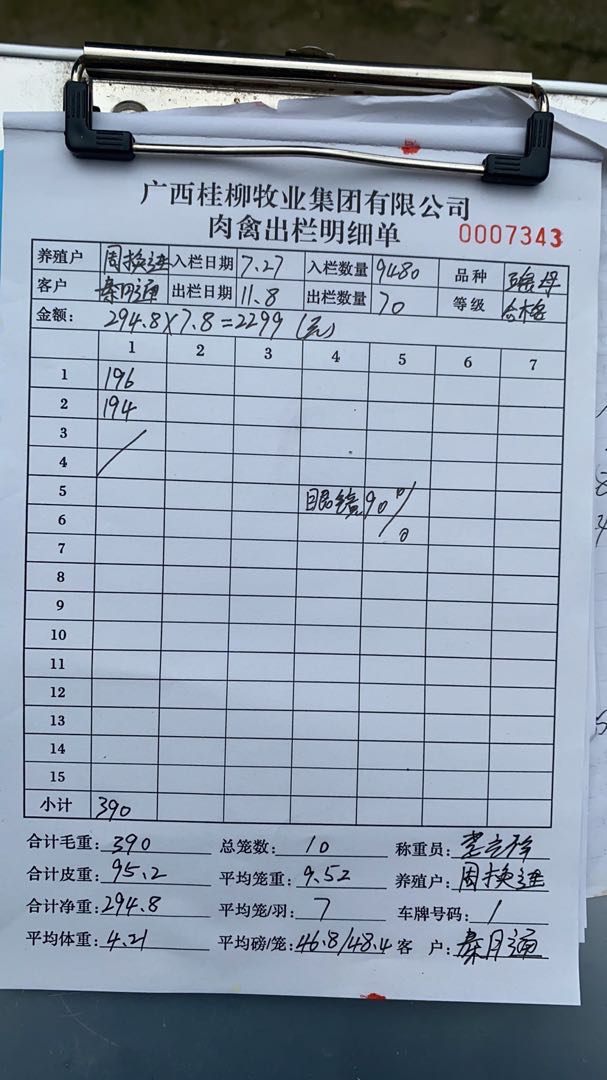 广西桂柳牧业集团有限公司
肉禽出栏明细单 0007343
养殖户 周换连 入栏日期 7.27 入栏数量 9480 品种 母
客户 秦月通 出栏日期 11.8 出栏数量 70 等级 合格
金额: 294.8×7.8=2299 (元)
1 2 3 4 5 6 7
1 196
2 194
3
4
5 眼镜90%
6
7
8
9
10
11
12
13
14
15
小计 390
合计毛重: 390 总笼数: 10 称重员:
合计皮重: 95.2 平均笼重: 9.52 养殖户: 周换连
合计净重: 294.8 平均笼/羽: 7 车牌号码: /
平均体重: 4.21 平均磅/笼: 46.8/48.4 客 户: 秦月通